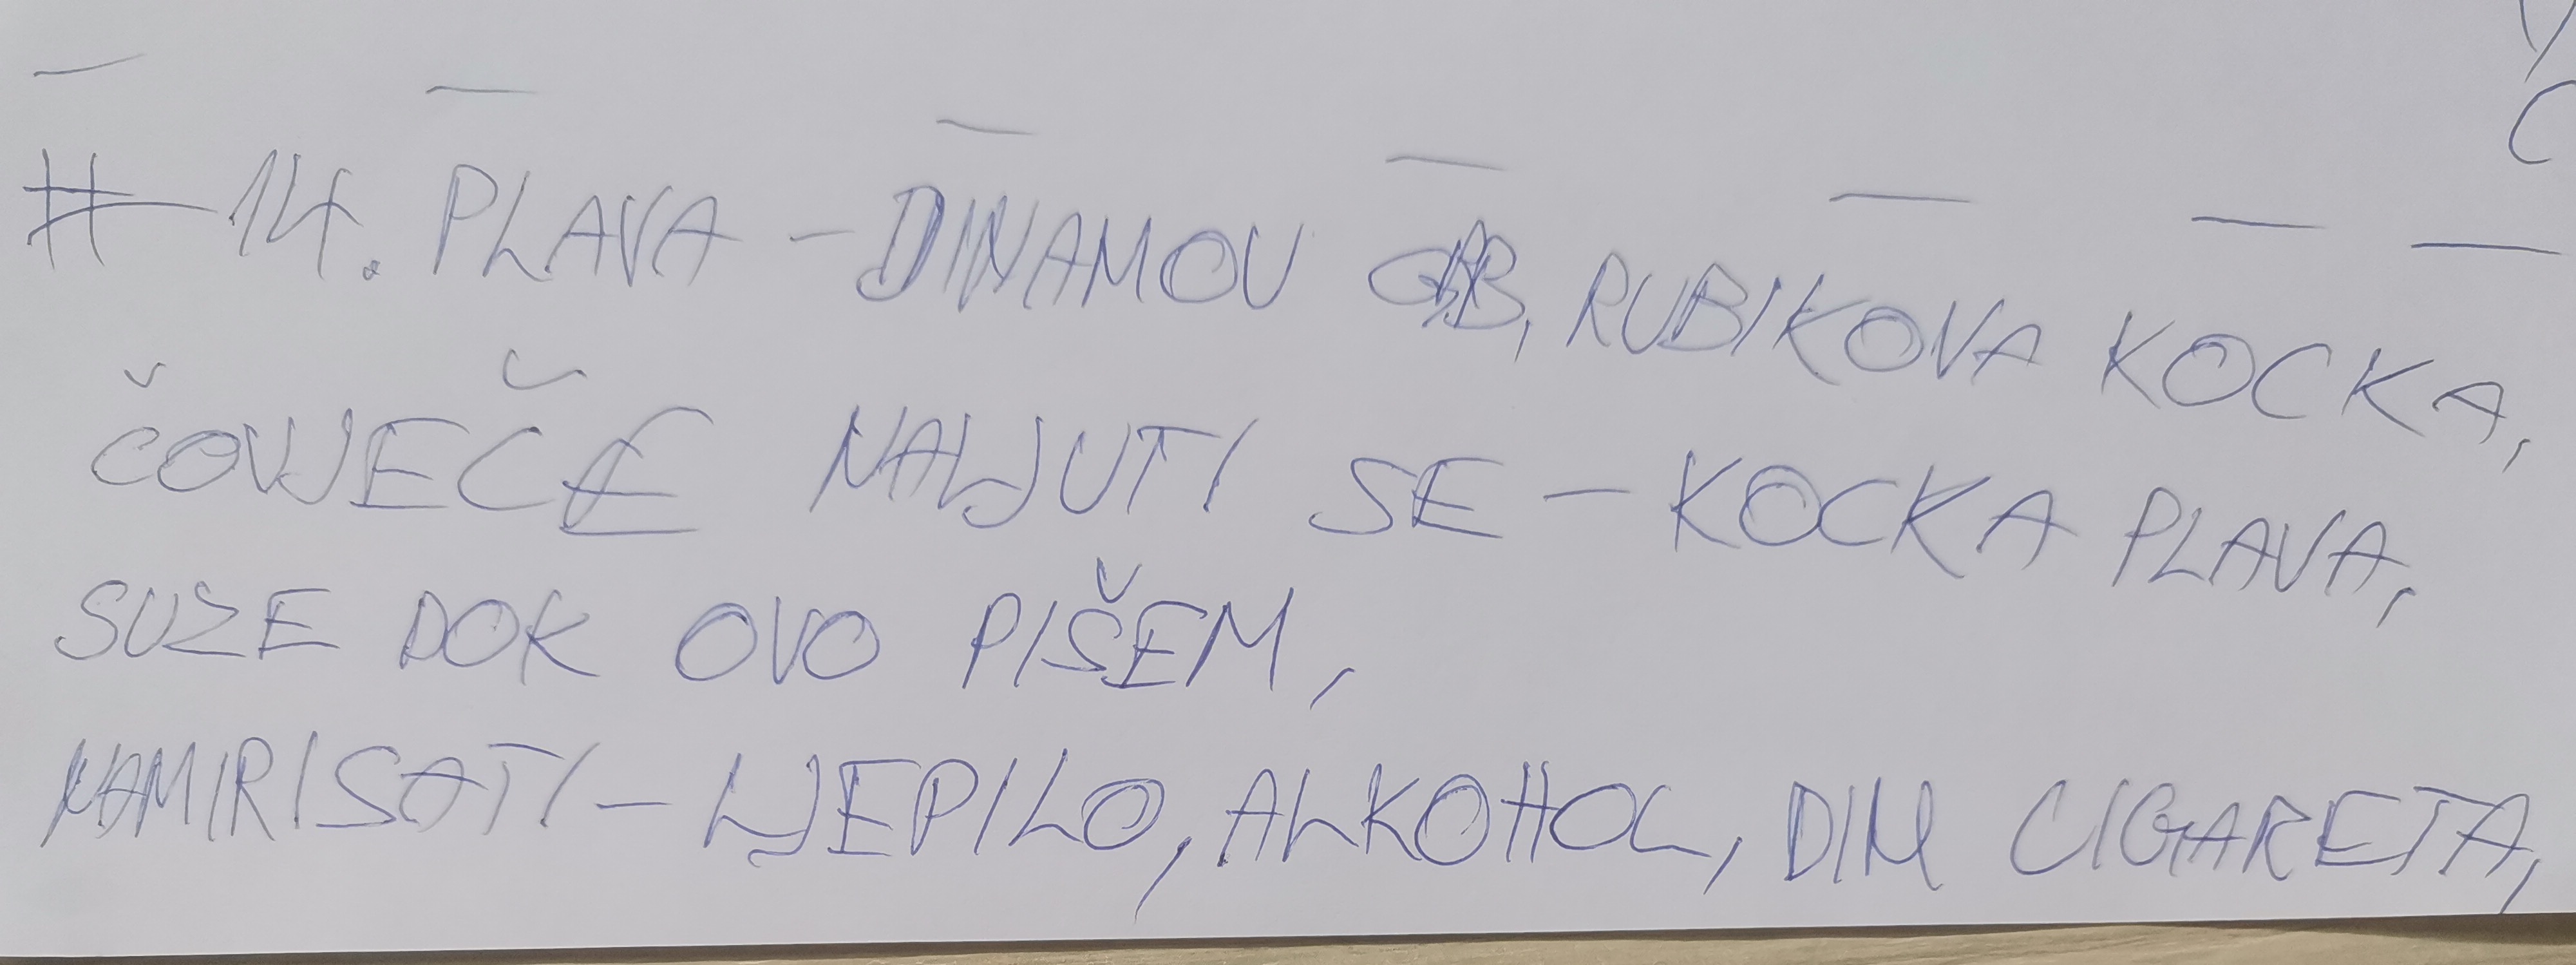 # 14. PLAVA - DINAMOV GRB, RUBIKOVA KOCKA,
ČOVJEČE NALJUTI SE - KOCKA PLAVA,
SUZE DOK OVO PIŠEM,
NAMIRISATI - LJEPILO, ALKOHOL, DIM CIGARETA,